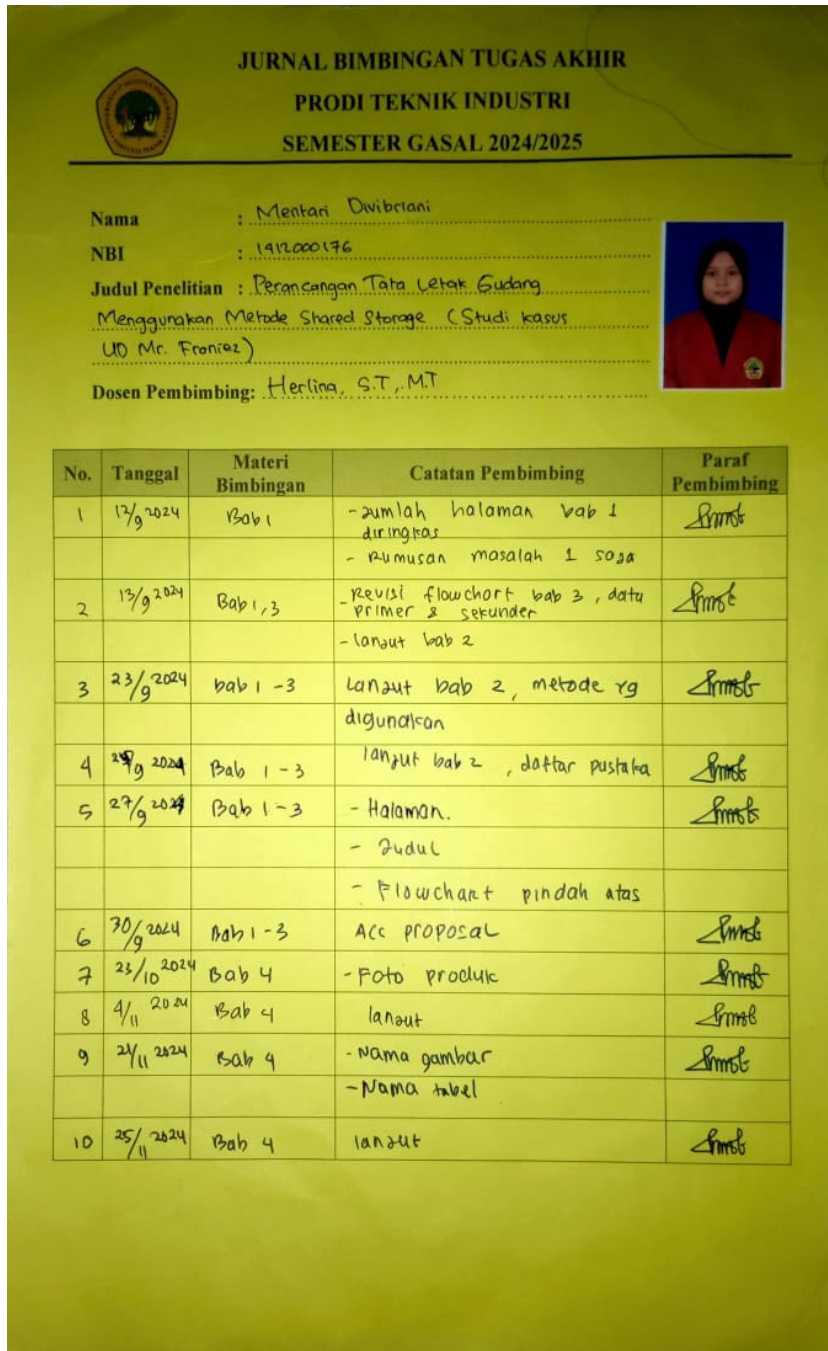 JURNAL BIMBINGAN TUGAS AKHIR
PRODI TEKNIK INDUSTRI
SEMESTER GASAL 2024/2025
Nama : Mentari Divibriani
NBI : 1912000176
Judul Penelitian : Perancangan Tata Letak Gudang
Menggunakan Metode Shared Storage (Studi kasus
UD Mr. Froniez)
Dosen Pembimbing: Herlina, S.T, M.T
No. Tanggal Materi Bimbingan Catatan Pembimbing Paraf Pembimbing
1 12/9 2024 Bab 1 - Jumlah halaman bab 1
diringkas
- Rumusan masalah 1 saja
2 13/9 2024 Bab 1,3 - Revisi flowchart bab 3, data
primer & sekunder
- lanjut bab 2
3 23/9 2024 bab 1 - 3 Lanjut bab 2, metode yg
digunakan
4 /9 2024 Bab 1 - 3 lanjut bab 2, daftar pustaka
5 27/9 2024 Bab 1 - 3 - Halaman.
- Judul
- Flowchart pindah atas
6 30/9 2024 Bab 1 - 3 Acc proposal
7 23/10 2024 Bab 4 - Foto produk
8 4/11 2024 Bab 4 lanjut
9 21/11 2024 Bab 4 - Nama gambar
- Nama tabel
10 25/11 2024 Bab 4 lanjut